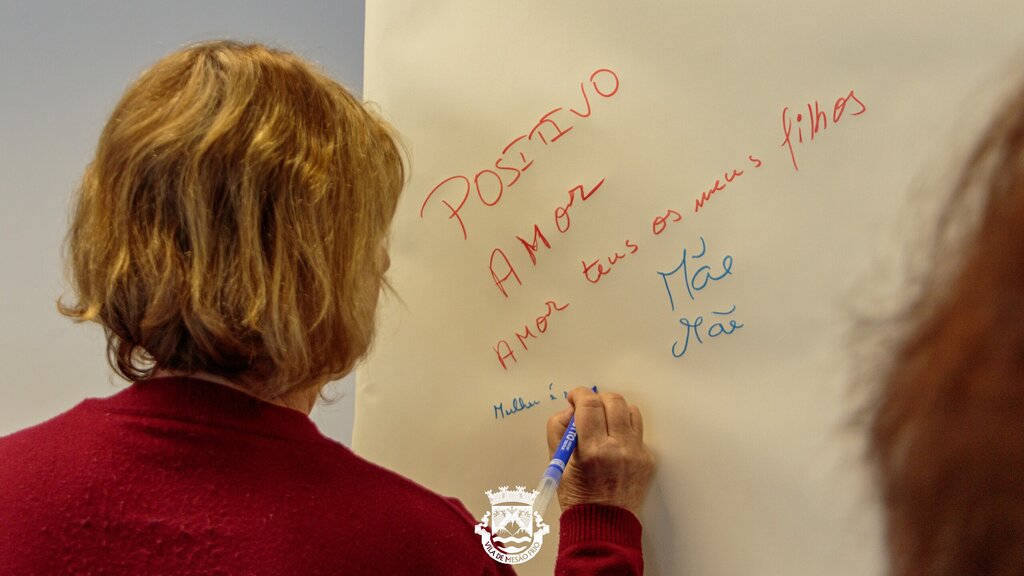 POSITIVO
AMOR
AMOR teus os meus filhos
Mãe
Mãe
Mulher é
VILA DE MESÃO FRIO